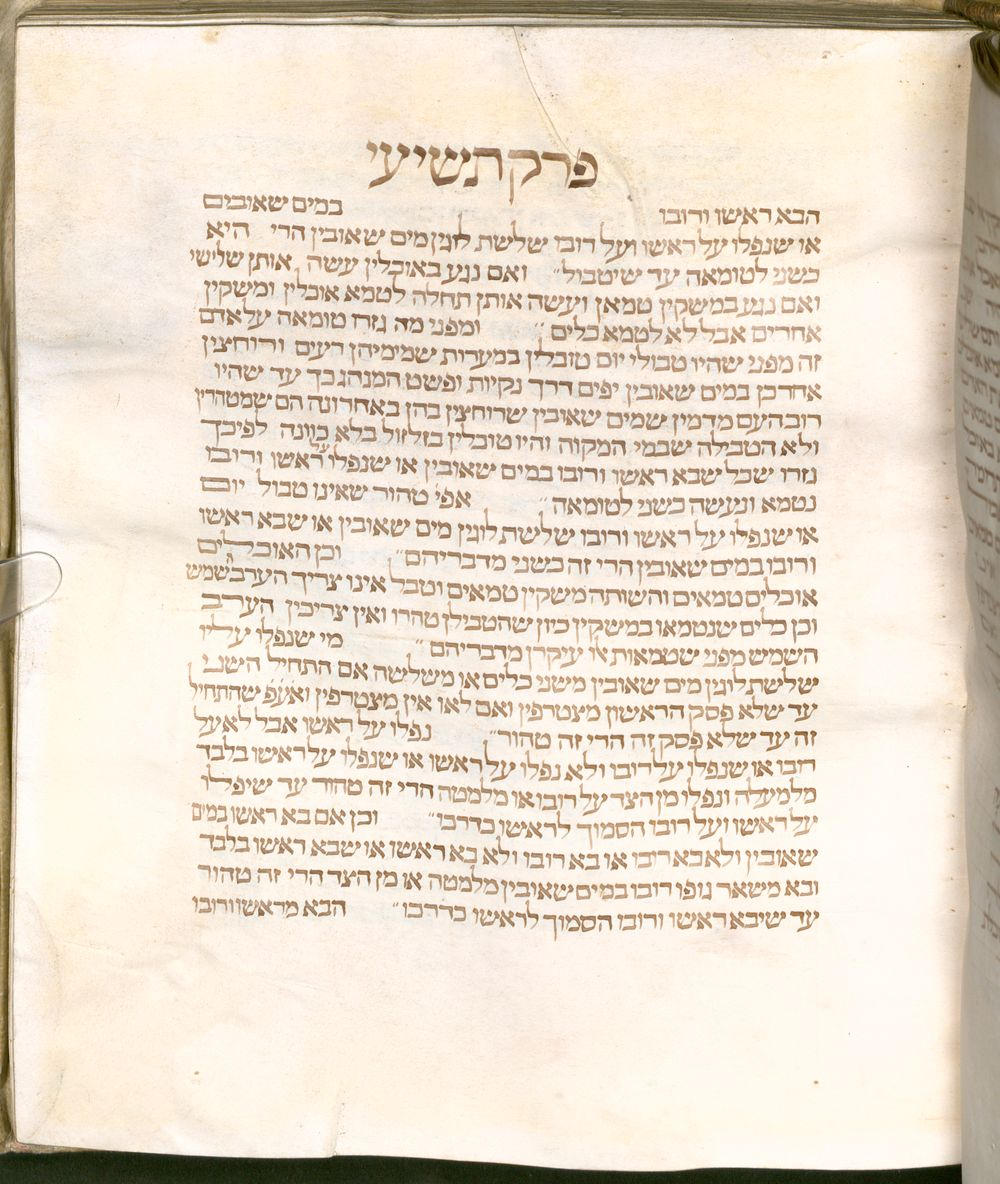 פרק תשיעי
הבא ראשו ורובו במים שאובים
או שנפלו על ראשו ועל רובו שלישת לוגין מים שאובין הרי היא
כשני לטומאה עד שיטבול״ ואם נגע באוכלין עשה אותן שלישי
ואם נגע במשקין טמאן ועשה אותן תחלה לטמא אוכלין ומשקין
אחרים אבל לא לטמא כלים״ ומפני מה גזרו טומאה על אדם
זה מפני שהיו טבולי יום טובלין במערות שמימיהן רעים ורוחצין
אחר כן במים שאובין יפים דרך נקיות ופשט המנהג כך עד שהיו
רוב העם מדמין שמים שאובין שרוחצין בהן באחרונה הם שמטהרין
ולא הטבילה שבמי המקוה והיו טובלין בזלזול בלא כוונה לפיכך
גזרו שכל שבא ראשו ורובו במים שאובין או שנפלו על ראשו ורובו
נטמא ונעשה כשני לטומאה״ אפי׳ טהור שאינו טבול יום
או שנפלו על ראשו ורובו שלישת לוגין מים שאובין או שבא ראשו
ורובו במים שאובין הרי זה כשני מדבריהם״ וכן האוכלים
אוכלים טמאים והשותה משקין טמאים וטבל אינו צריך הערב שמש
וכן כלים שנטמאו במשקין כיון שהטבילן טהרו ואין צריכין הערב
השמש מפני שטמאות אלו עיקרן מדבריהם״ מי שנפלו עליו
שלישת לוגין מים שאובין משני כלים או משלישה אם התחיל השני
עד שלא פסק הראשון מצטרפין ואם לאו אין מצטרפין ואעפ שהתחיל
זה עד שלא פסק זה הרי זה טהור״ נפלו על ראשו אבל לא על
רובו או שנפלו על רובו ולא נפלו על ראשו או שנפלו על ראשו בלבד
מלמעלה ונפלו מן הצד על רובו או מלמטה הרי זה טהור עד שיפלו
על ראשו ועל רובו הסמוך לראשו כדרכו״ וכן אם בא ראשו במים
שאובין ולא בא רובו או בא רובו ולא בא ראשו או שבא ראשו בלבד
ובא משאר גופו רובו במים שאובין מלמטה או מן הצד הרי זה טהור
עד שיבא ראשו ורובו הסמוך לראשו כדרכו״ הבא מראשו ורובו